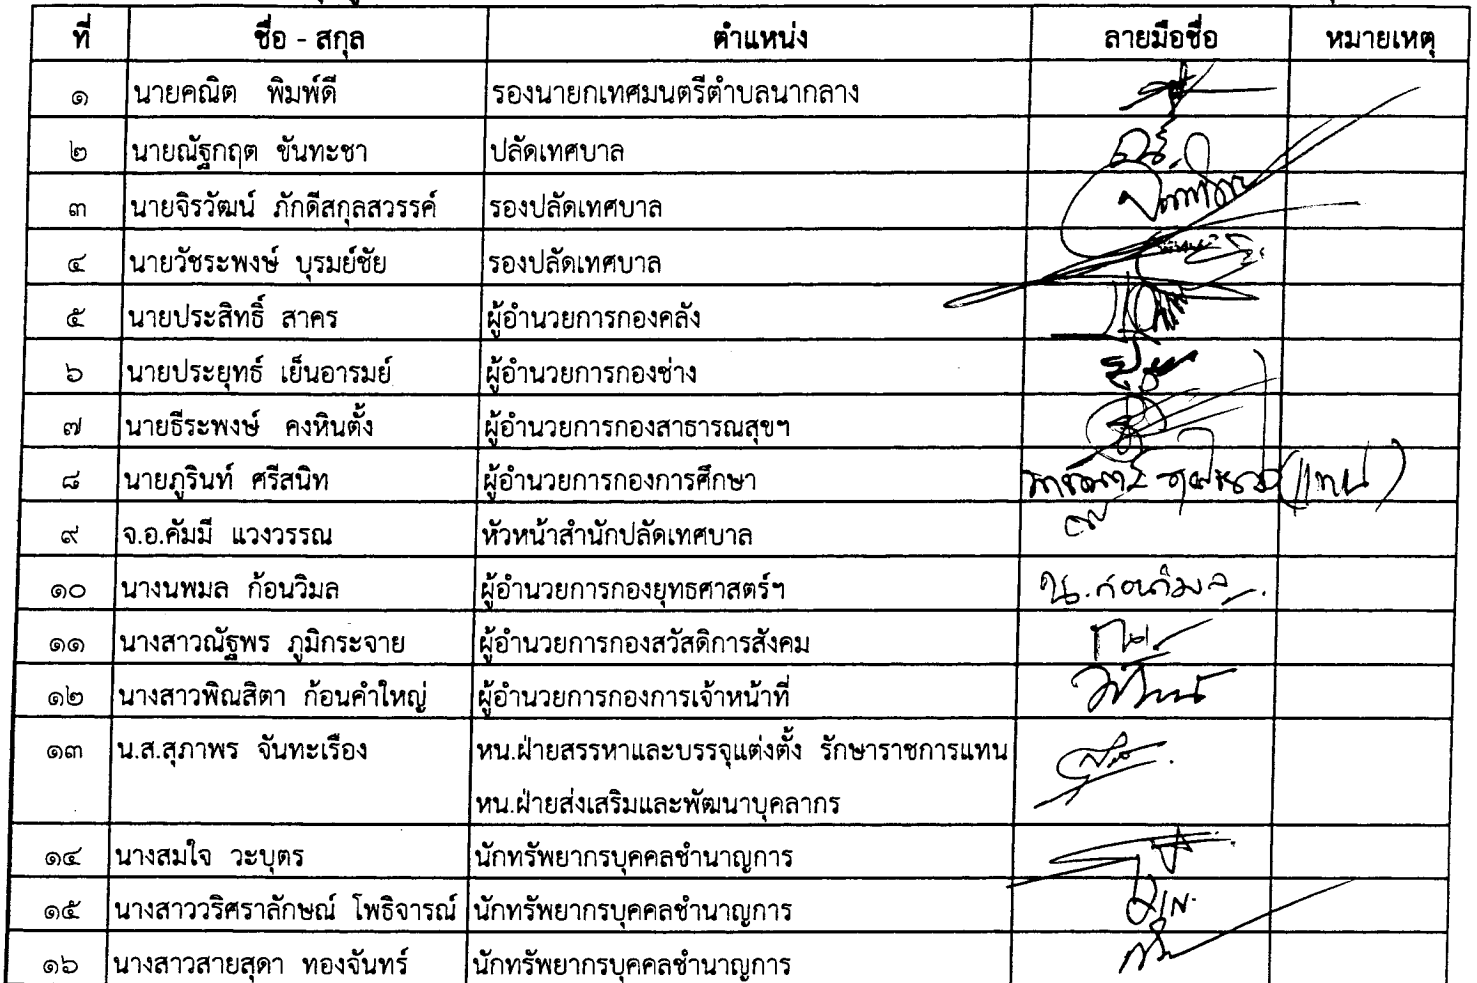 ที่ ชื่อ - สกุล ตำแหน่ง ลายมือชื่อ หมายเหตุ
๑ นายคณิต พิมพ์ดี รองนายกเทศมนตรีตำบลนากลาง
๒ นายณัฐกฤต ขันทะชา ปลัดเทศบาล
๓ นายจิรวัฒน์ ภักดีสกุลสวรรค์ รองปลัดเทศบาล
๔ นายวัชระพงษ์ บุรมย์ชัย รองปลัดเทศบาล
๕ นายประสิทธิ์ สาคร ผู้อำนวยการกองคลัง
๖ นายประยุทธ์ เย็นอารมย์ ผู้อำนวยการกองช่าง
๗ นายธีระพงษ์ คงหินตั้ง ผู้อำนวยการกองสาธารณสุขฯ
๘ นายภูรินท์ ศรีสนิท ผู้อำนวยการกองการศึกษา (แทน)
๙ จ.อ.คัมมี แวงวรรณ หัวหน้าสำนักปลัดเทศบาล
๑๐ นางนพมล ก้อนวิมล ผู้อำนวยการกองยุทธศาสตร์ฯ น.ก้อนวิมล
๑๑ นางสาวณัฐพร ภูมิกระจาย ผู้อำนวยการกองสวัสดิการสังคม
๑๒ นางสาวพิณสิตา ก้อนคำใหญ่ ผู้อำนวยการกองการเจ้าหน้าที่
๑๓ น.ส.สุภาพร จันทะเรือง หน.ฝ่ายสรรหาและบรรจุแต่งตั้ง รักษาราชการแทน
หน.ฝ่ายส่งเสริมและพัฒนาบุคลากร
๑๔ นางสมใจ วะบุตร นักทรัพยากรบุคคลชำนาญการ
๑๕ นางสาววริศราลักษณ์ โพธิจารณ์ นักทรัพยากรบุคคลชำนาญการ
๑๖ นางสาวสายสุดา ทองจันทร์ นักทรัพยากรบุคคลชำนาญการ